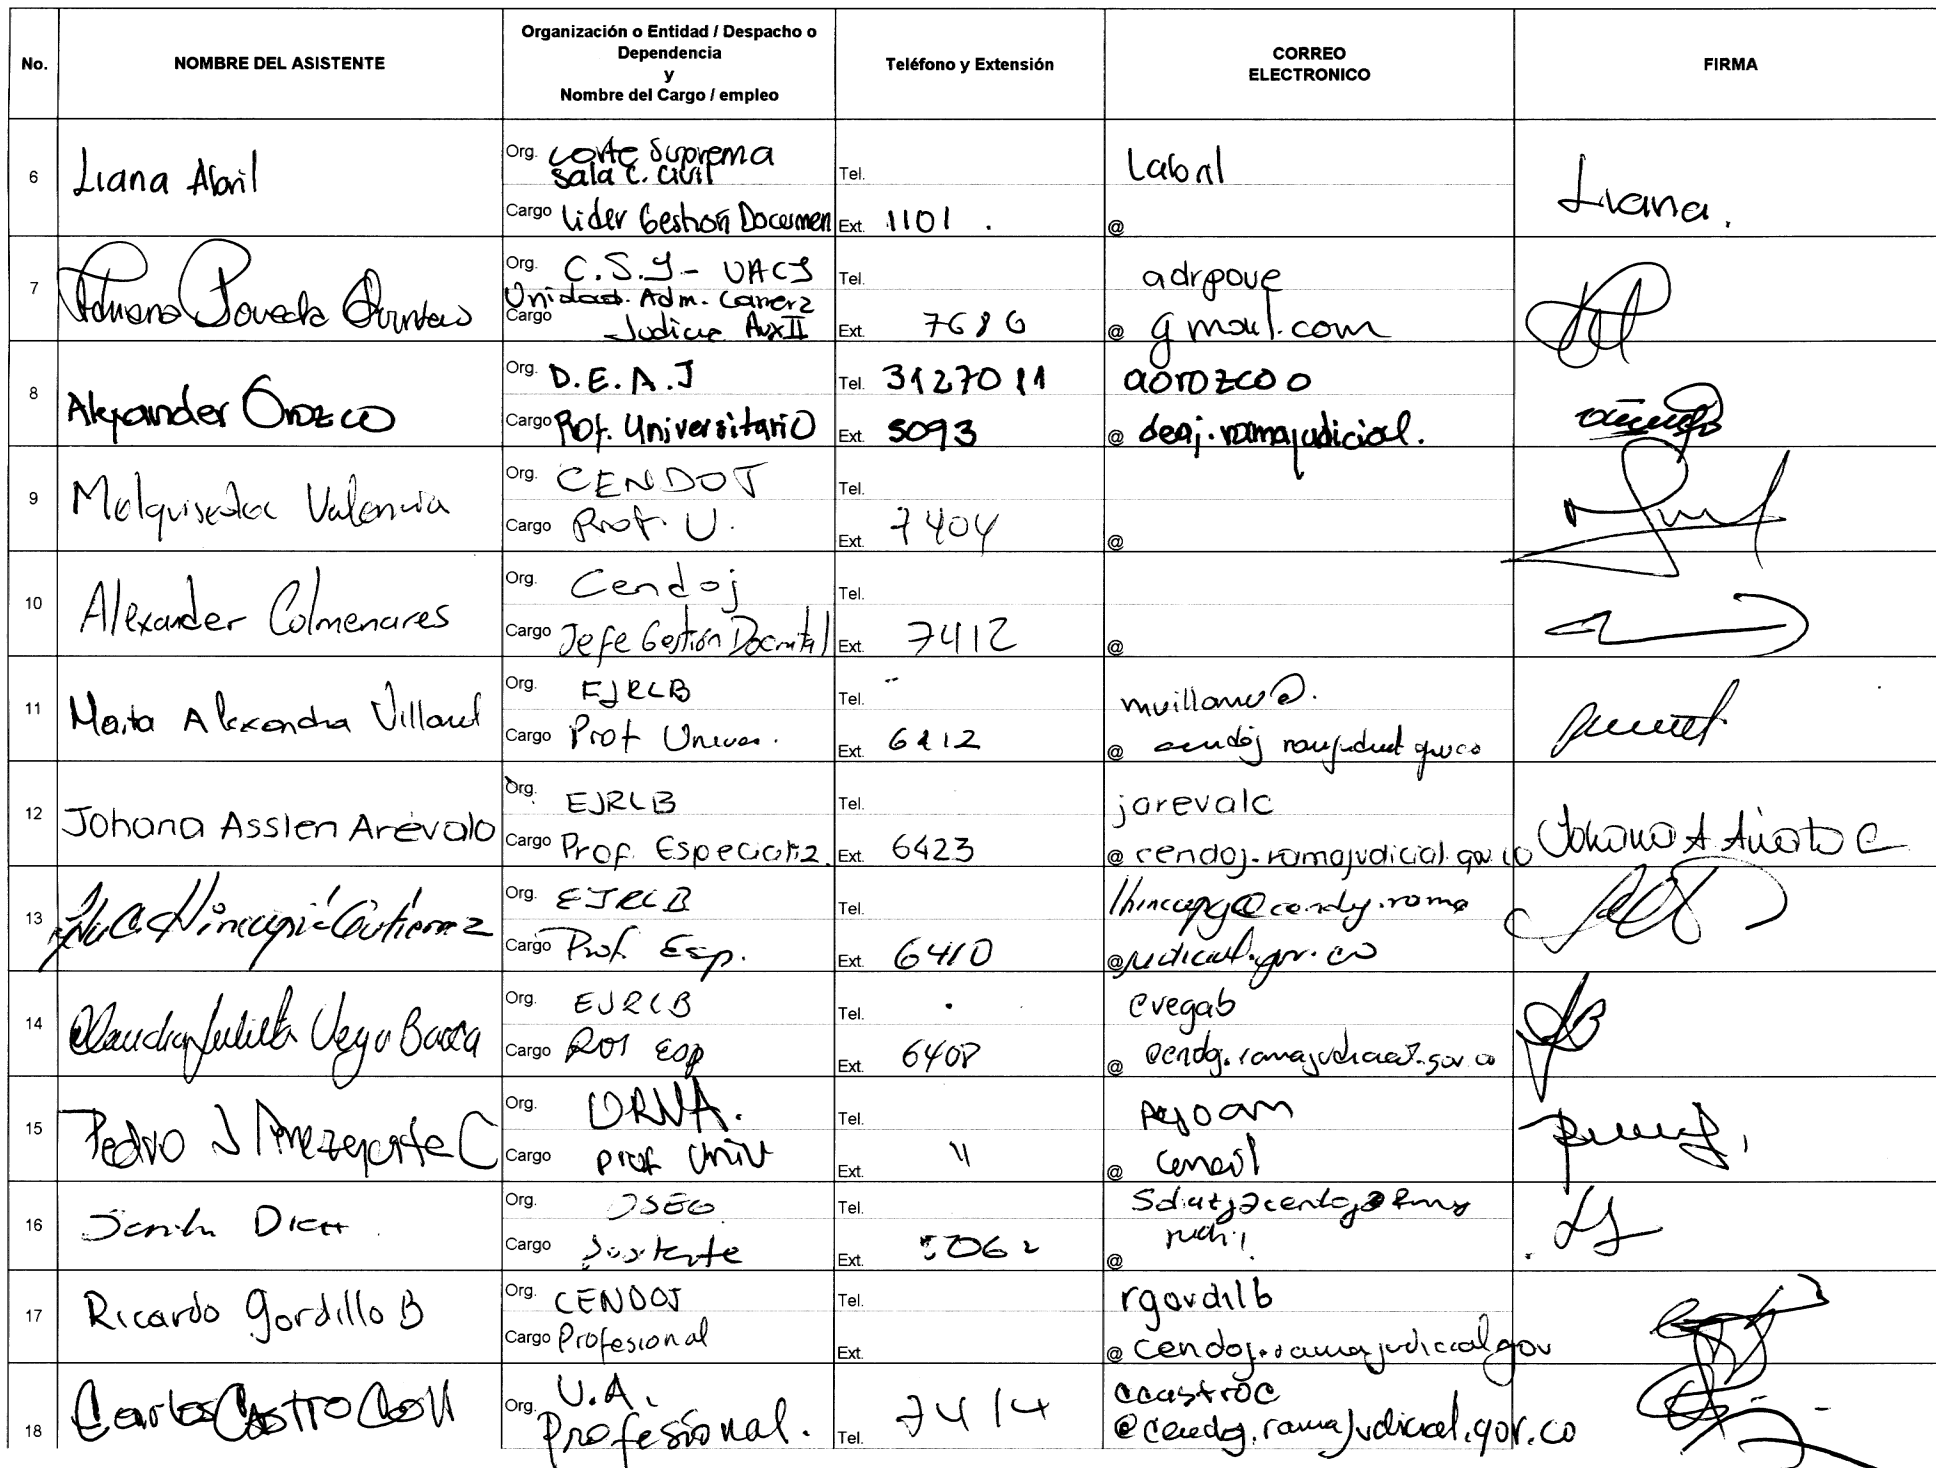 No.
NOMBRE DEL ASISTENTE
Organización o Entidad / Despacho o
Dependencia
y
Nombre del Cargo / empleo
Teléfono y Extensión
CORREO
ELECTRONICO
FIRMA
6
Liana Abril
Org. Corte Suprema
Sala C. Civil
Cargo Lider Gestión Documen
Tel.
Ext. 1101.
Labril
@
Liana.
7
Adriana Poveda
Org. C.S.J - UACJ
Unidad. Adm. Carrera
Cargo Judicia Aux II
Tel.
Ext. 7686
adrpove
@ gmail.com
8
Alexander Orozco
Org. D.E.A.J
Cargo Prof. Universitario
Tel. 3127011
Ext. 5093
aorozco o
@ deaj.ramajudicial.
9
Melquisedec Valencia
Org. CENDOJ
Cargo Prof. U.
Tel.
Ext. 7404
@
10
Alexander Colmenares
Org. Cendoj
Cargo Jefe Gestión
Tel.
Ext. 7412
@
11
Alexandra
Org. EJRLB
Cargo Prof
Tel.
Ext. 6212
@ cendoj
12
Johana Asslen Arévalo
Org. EJRLB
Cargo Prof. Especializ.
Tel.
Ext. 6423
jarevalc
@ cendoj.ramajudicial.gov.co
Johana A
13
Hincapié Gutierrez
Org. EJRLB
Cargo Prof. Esp.
Tel.
Ext. 6410
@judicial.gov.co
14
Claudia Julieta Vega Bacca
Org. EJRLB
Cargo Prof Esp
Tel.
Ext. 6408
cvegab
@ cendoj.ramajudicial.gov.co
15
Pedro J C
Org. URNA.
Cargo Prof Univ
Tel.
Ext. 11
@
16
Org.
Cargo
Tel.
Ext. 5062
@
17
Ricardo Gordillo B
Org. CENDOJ
Cargo Profesional
Tel.
Ext.
rgordilb
@ cendoj.ramajudicial gov
18
Carlos Castro Coll
Org. U.A.
Profesional.
Tel. 7414
ccastroc
@cendoj.ramajudicial.gov.co